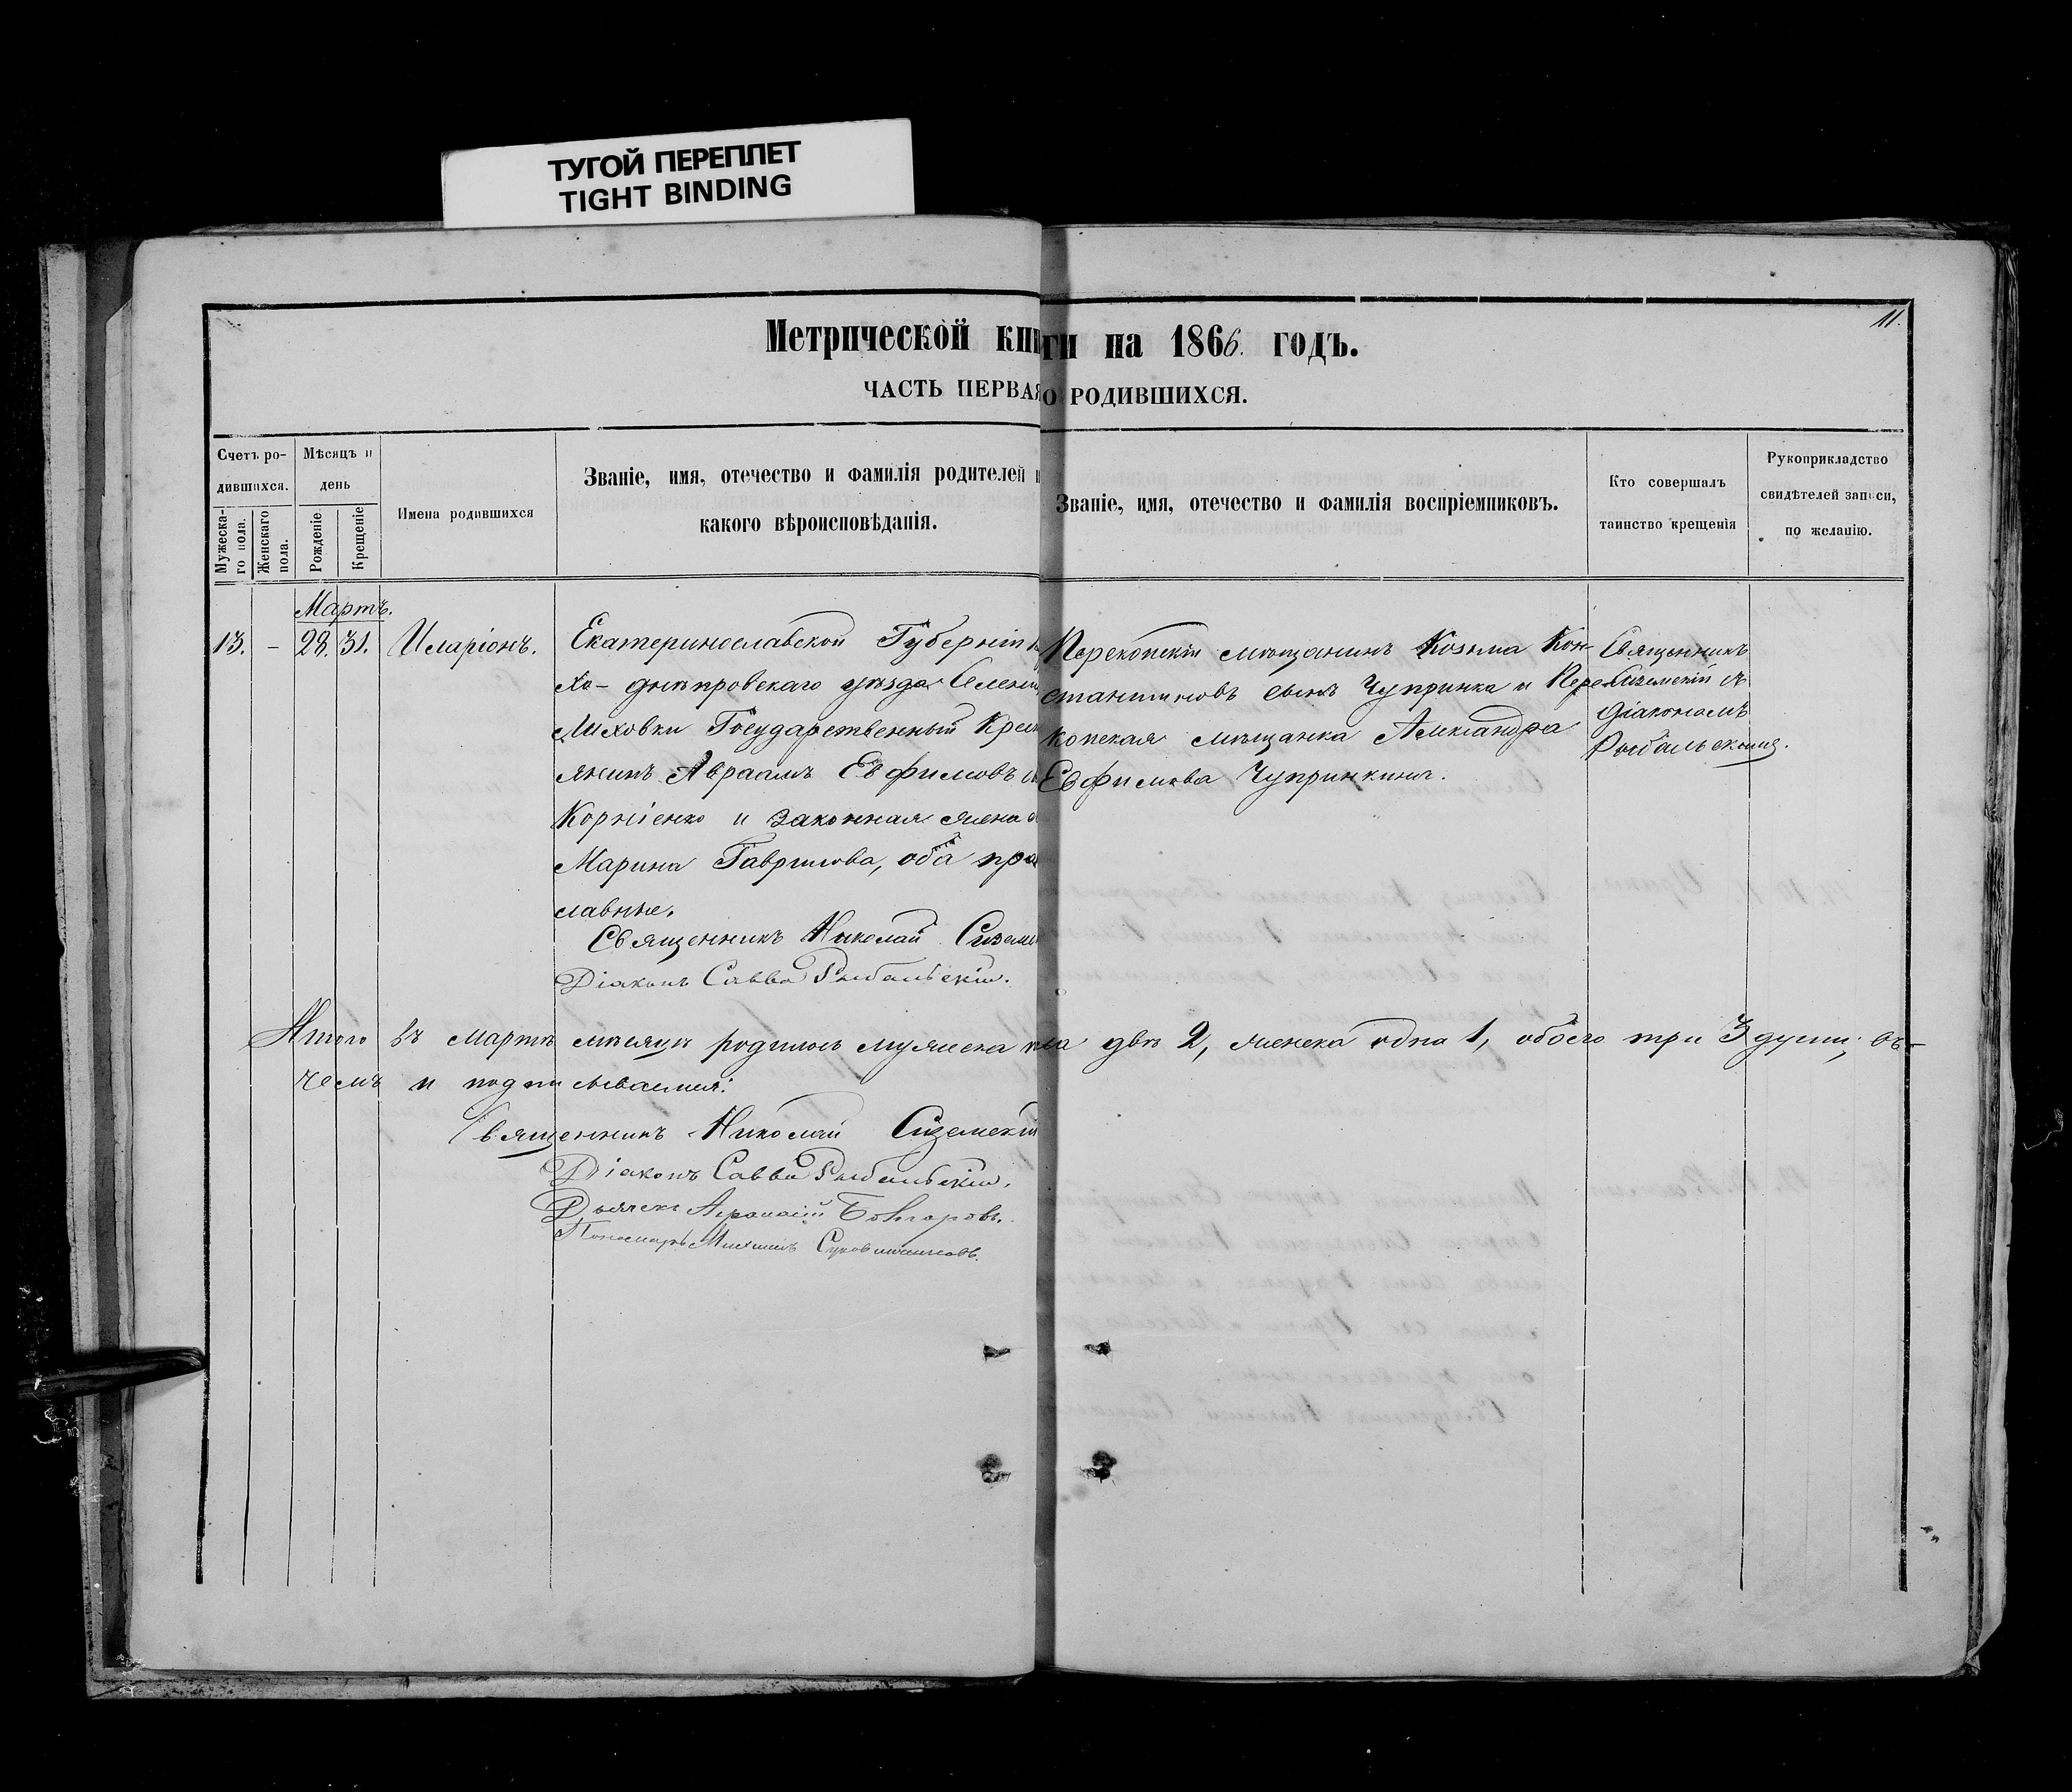 ТУГОЙ ПЕРЕПЛЕТ
TIGHT BINDING
11.
Метрической книги на 1866. годъ.
ЧАСТЬ ПЕРВАЯ О РОДИВШИХСЯ.
Счетъ ро-
дившихся.
Мужеска-
го пола.
Женскаго
пола.
Мѣсяцъ и
день
Рожденіе.
Крещеніе
Имена родившихся
Званіе, имя, отечество и фамилія родителей и
какого вѣроисповѣданія.
Званіе, имя, отечество и фамилія воспріемниковъ.
Кто совершалъ
таинство крещенія
Рукоприкладство
свидѣтелей записи,
по желанію.
Мартъ.
13. - 28. 31. Иларіонъ.
Екатеринославской Губерніи
хо-днѣпровскаго уѣзда Селенія
Лиховки Государственный Кресть
янинъ Авраамъ Евфимовъ
Корніенко и законная жена
Марина Гаврилова, оба пра
славные.
Священникъ Николай Сизем
Діаконъ Савва Рыбальскій.
Перекопскій мѣщанинъ Козьма Кон-
стантиновъ сынъ Чупринка и Пере
копская мѣщанка Александра
Евфимова Чупринкина.
Священникъ
Сиземскій съ
Діакономъ
Рыбальскимъ.
Итого въ Мартѣ мѣсяцѣ родилось мужеска пола двѣ 2, женска одна 1, обоего три 3 души; въ-
чемъ и подписываемся:
Священникъ Николай Сиземскій
Діаконъ Савва Рыбальскій.
Дьячекъ Афанасій
Пономарь Михаилъ